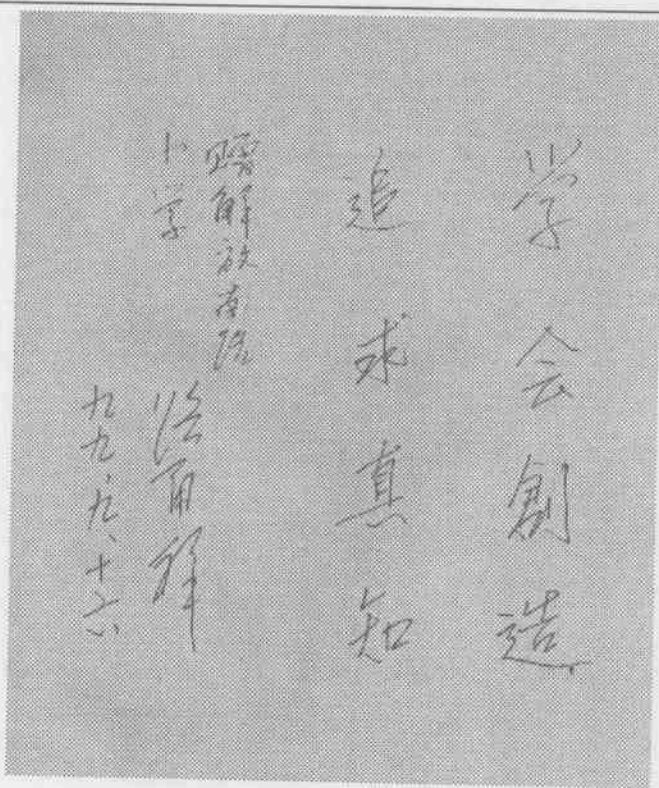 学会創造
追求真知
赠解放南路
小学
九九.九.十六